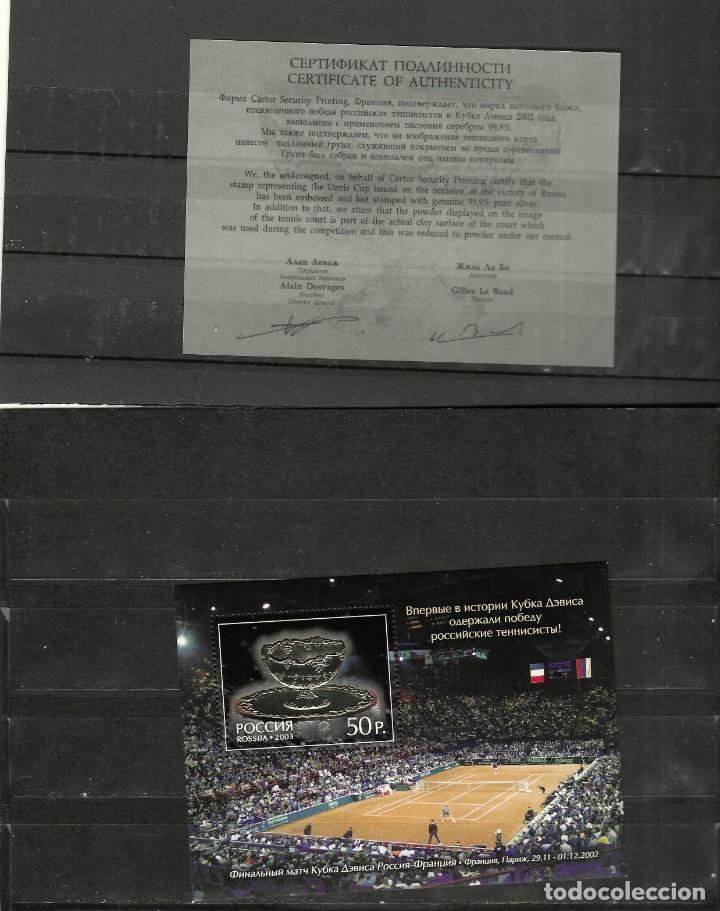 СЕРТИФИКАТ ПОДЛИННОСТИ
CERTIFICATE OF AUTHENTICITY
Фирма Cartor Security Printing, Франция, подтверждает, что марка почтового блока,
посвященного победе российских теннисистов в Кубке Дэвиса 2002 года,
выполнена с применением тиснения серебром 99,9%.
Мы также подтверждаем, что на изображение теннисного корта
нанесен подлинный грунт, служивший покрытием во время соревнований.
Грунт был собран и измельчен под нашим контролем.
We, the undersigned, on behalf of Cartor Security Printing certify that the
stamp representing the Davis Cup issued on the occasion of the victory of Russia
has been embossed and hot stamped with genuine 99,9% pure silver.
In addition to that, we attest that the powder displayed on the image
of the tennis court is part of the actual clay surface of the court which
was used during the competition and this was reduced to powder under our control.
Алан Леваж
Президент
Генеральный директор
Alain Desvages
President
Director General
Жиль Ле Бо
Директор
Gilles Le Baud
Director
Впервые в истории Кубка Дэвиса
одержали победу
российские теннисисты!
РОССИЯ
ROSSIJA • 2003
50 Р.
Финальный матч Кубка Дэвиса Россия-Франция • Франция, Париж, 29.11 - 01.12.2002
todocoleccion